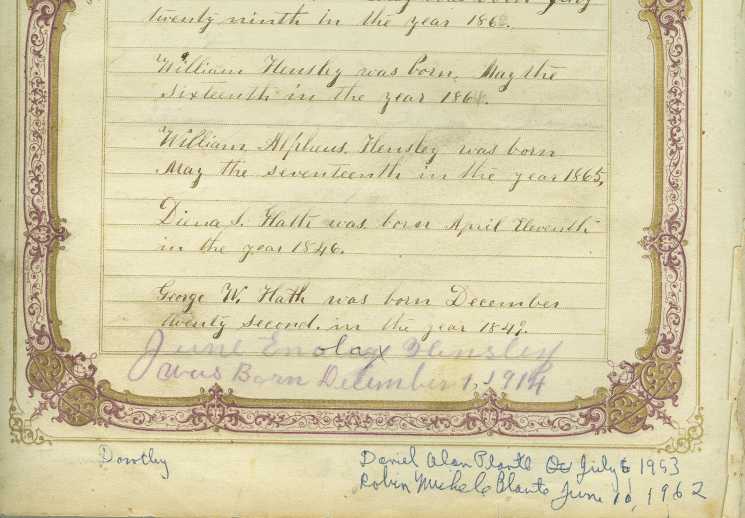 was born July
twenty ninth in the year 186
William Hensley was born, May the
sixteenth in the year 186
William Alpheus Hensley was born
May the seventeenth in the year 1865,
Diena S. Hath was born April Eleventh
in the year 1846.
George W. Hath was born December
twenty second in the year 1849.
June Enola Hensley
was Born December 1, 1914
Dorothy
Daniel Alan Plante July 6 1953
Robin Michele Plante June 10, 1962